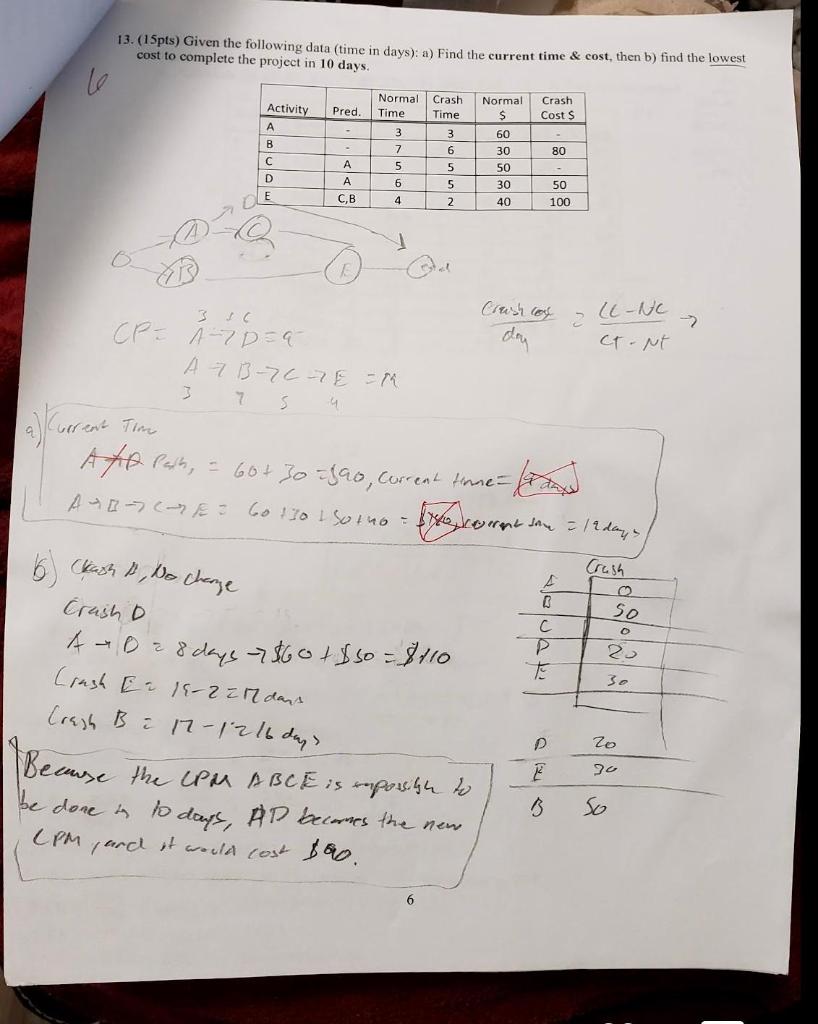 13. (15pts) Given the following data (time in days): a) Find the current time & cost, then b) find the lowest
cost to complete the project in 10 days.
6
Activity Pred. Normal Time Crash Time Normal $ Crash Cost $
A - 3 3 60 -
B - 7 6 30 80
C A 5 5 50 -
D A 6 5 30 50
E C,B 4 2 40 100
D
A C
B E end
Crash cost / day = CC-NC / CT-NT →
3
CP= A→D=9
A→B→C→E=19
3 7 5 4
a) Current Time
A→D Path, = 60+30=$90, current time= 9 days
A→B→C→E = 60+30+50+40 = $180, current time = 19 days
b) Crash A, No change
Crash D
A→D = 8 days → $60+$50=$110
Crash E = 19-2=17 days
Crash B = 17-1=16 days
Crash
A 0
B 50
C 0
D 20
E 30
D 20
E 30
B 50
Because the CPM ABCE is impossible to
be done in 10 days, AD becomes the new
CPM, and it would cost $90.
6